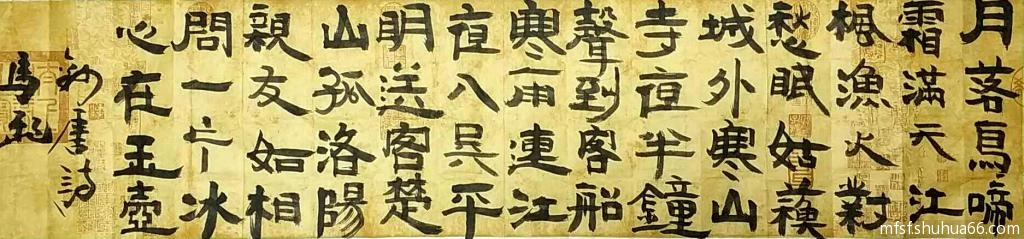 月落烏啼
霜滿天江
楓漁火對
愁眠姑蘓
城外寒山
寺夜半鐘
聲到客船
寒雨連江
夜入吳平
明送客楚
山孤洛陽
親友如相
問一片冰
心在玉壺
錄唐詩
馬
mfsfshuhua66.com